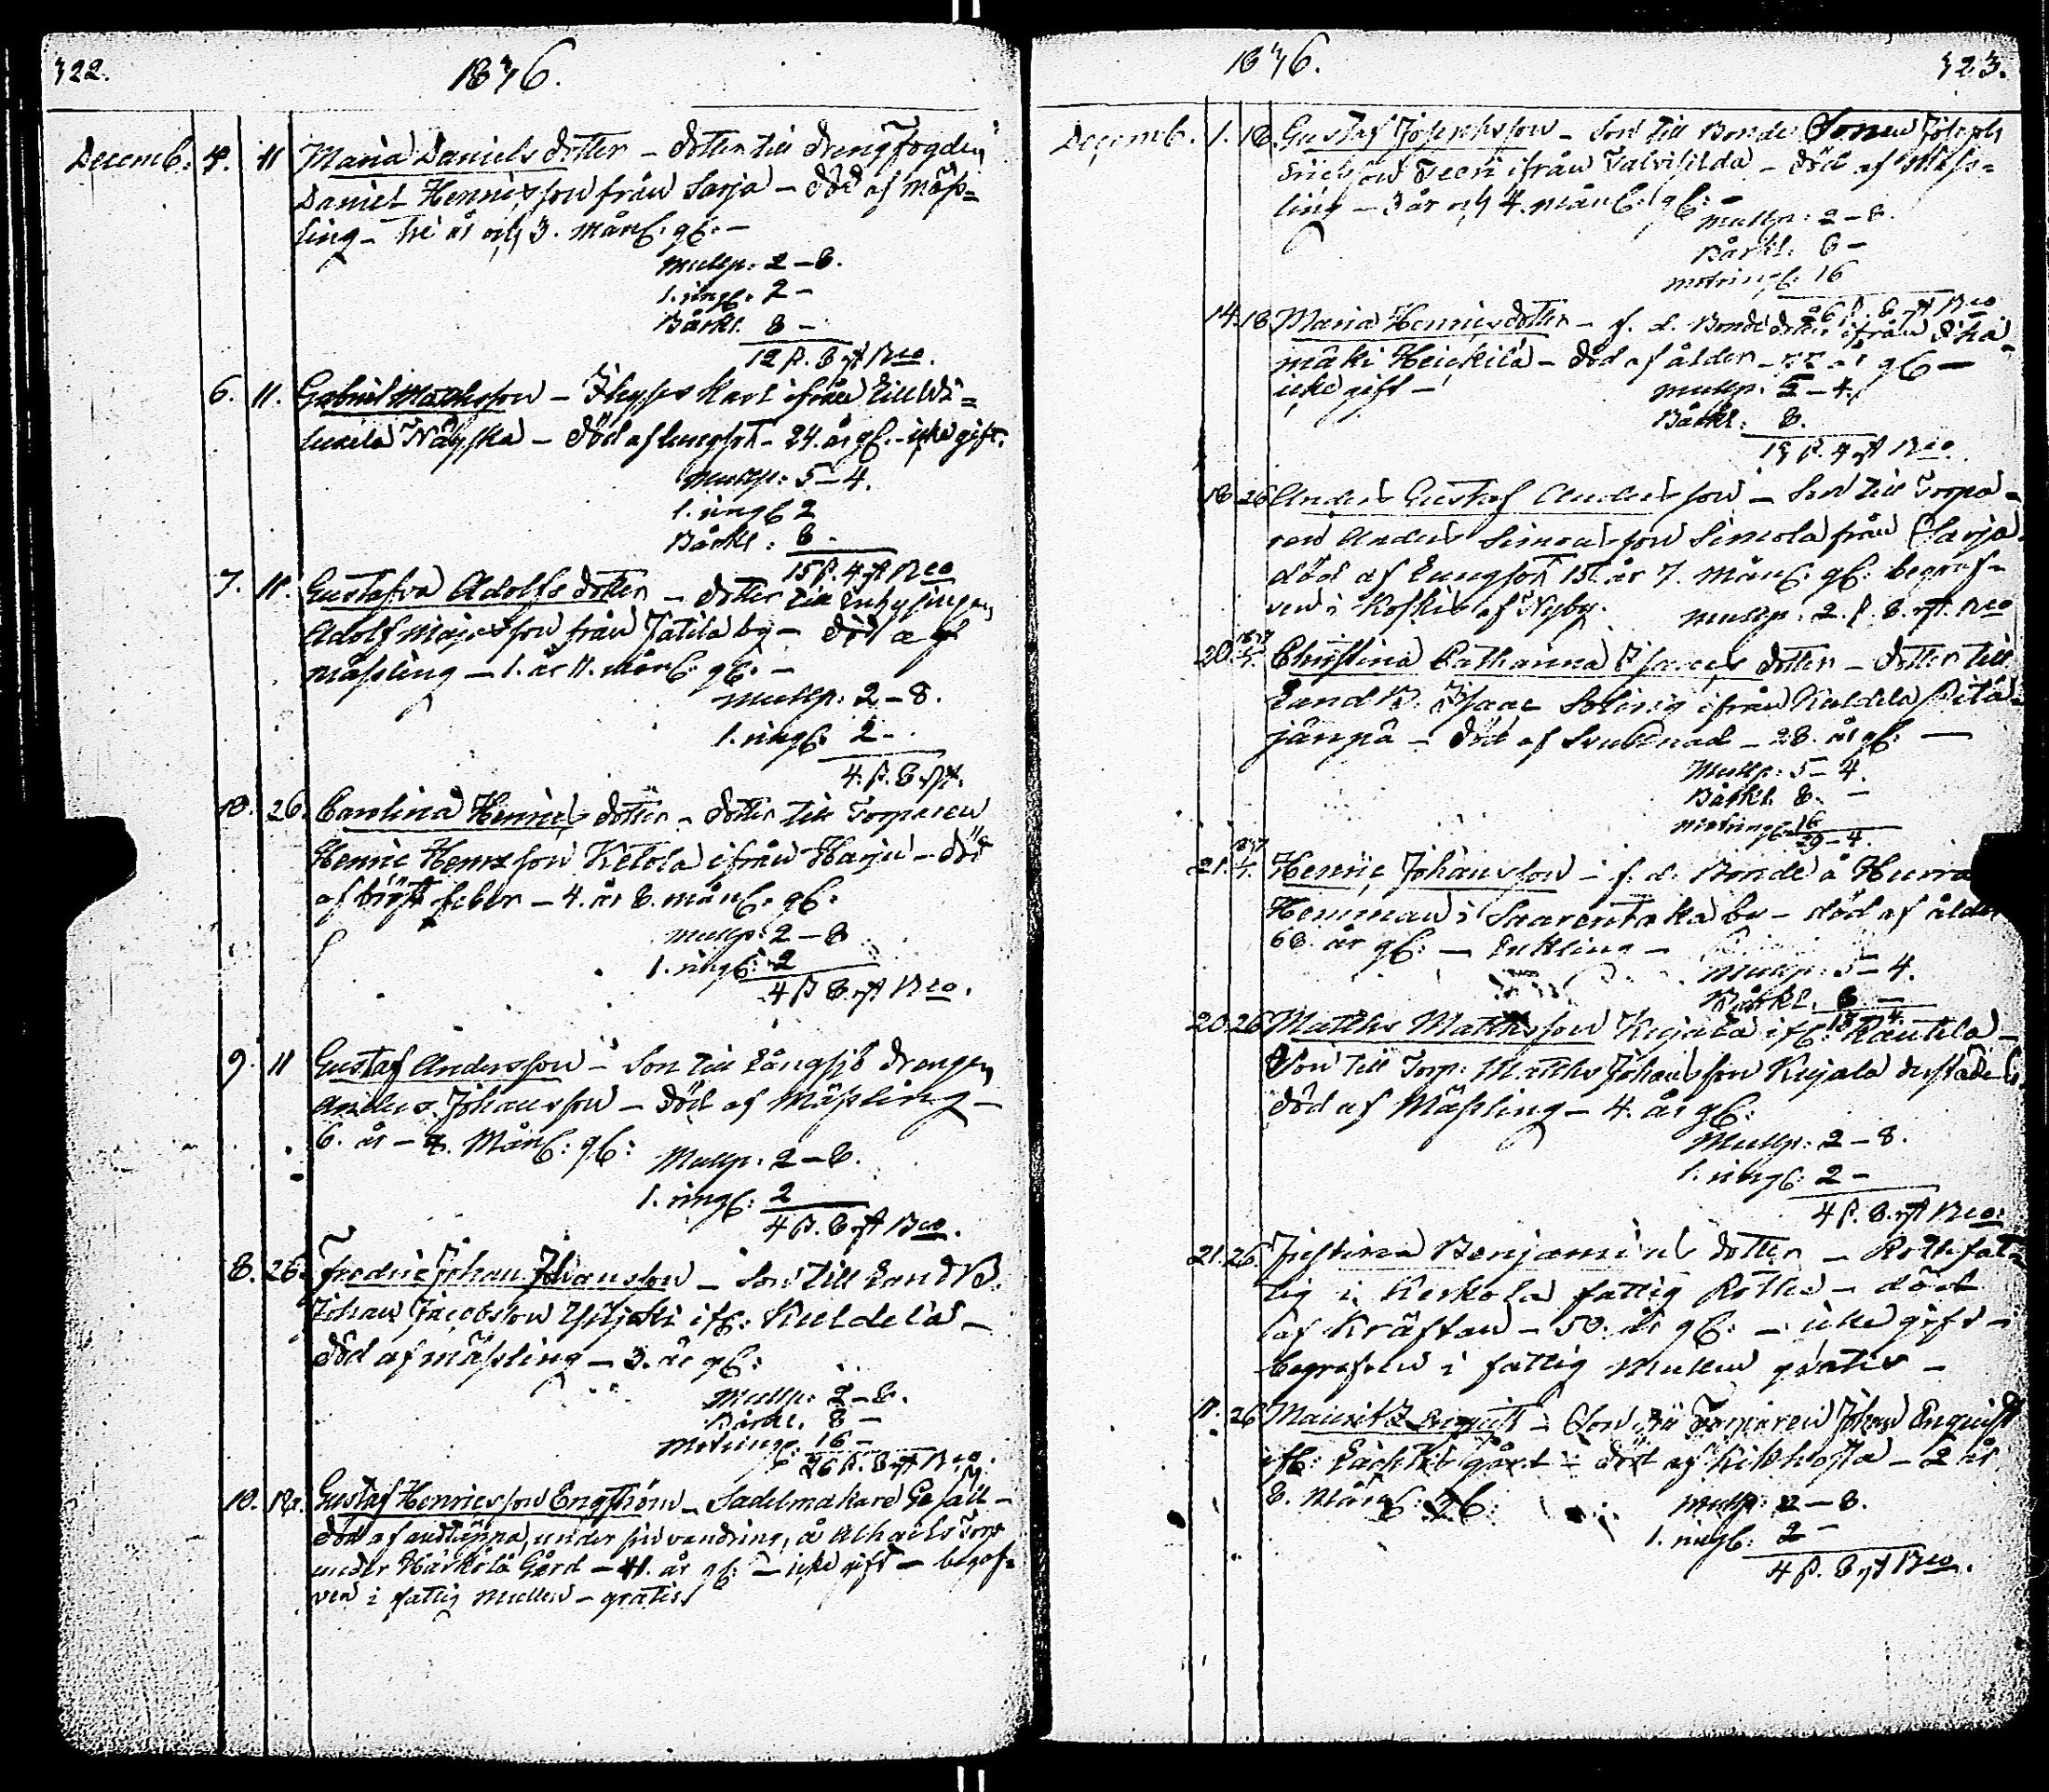 322.
1836.
Decemb: 4. 11 Maria Daniels dotter – dotter till drengfogden
Daniel Henricsson från Sarja – död af mäss=
ling – tre år och 3. mån: gl: –
Mullp: 2 – 8.
1. ringn: 2 –
Bårkl. 8 –
12 ß. 8 rst Bco.
6. 11. Gabriel Mathsson – Karl ifrån
– död af lungsot – 24. år gl. – icke gift.
Mullp: 5 – 4.
1. ringn 2
Bårkl: 8 –
15 ß. 4 rst Bco
7. 11. Gustafva Adolfs dotter – dotter till
Adolf från Jatila by – död af
mässling – 1. år 11. mån: gl: –
Mullp: 2 – 8.
1. ringn: 2 –
4. ß. 8 rst.
10. 26. Carolina Henrics dotter – dotter till Torparen
Henric Henricsson Ketola ifrån Harju – död
af feber – 4. år 8. mån: gl:
Mullp: 2 – 8
1. ringn: 2
4 ß 8. rst Bco.
9. 11 Gustaf Andersson – Son till Långsjö drengen
Anders Johansson – död af Mässling –
6. år – 4. Mån: gl:
Mullp. 2 – 8.
1. ringn: 2
4 ß. 8 rst Bco.
8. 26. Fredric Johan Johansson – Son till Land B.
Johan Jacobsson ifr: Kuldela –
död af mässling – 3. år gl:
Mullp: 2 – 8.
Bårkl. 8 –
Motringn: 16 –
26 ß. 8 rst Bco.
10. 18. Gustaf Henricsson Engström – Sadelmakare Gesäll –
död af andtäppa, under sin vandring, å Torp
under Härkälä Gård – 41. år gl: – icke gift – begraf=
ven i fattig mullen – gratis
1836.
323.
Decemb. 1. 18. Gustaf Josephsson – Son till Bonde Sonen Joseph
ifrån Talvisilda – död af Mäss=
ling – 3 år och 4. mån: gl: –
Mullp: 2 – 8.
Bårkl. 8 –
Motringn: 16
26 ß. 8 rst Bco
14. 18 Maria Henricsdotter – f. d. Bonde dotter ifrån
mäki Heickilä – död af ålder – 77 år gl –
icke gift –
Mullp: 5 – 4.
Bårkl: 8.
13 ß. 4 rst Bco
18. 26 Anders Gustaf Andersson – Son till Torpa=
ren Anders Simonsson Simola från Sarja.
död af Lungsot 15. år 7. Mån: gl: begraf=
ven i Koskis af Nyby.
Mullp: 2. ß. 8. rst. Bco
20. Christina Catharina Isaacs dotter – dotter till
Land B. Isaac ifrån Kuldela Pitkä=
jänpä – död af Svullnad – 28. år gl: –
Mullp: 5 – 4.
Bårkl. 8. –
Motringn: 16
29 – 4.
21. Henric Johansson – f. d. Bonde å
Hemman i Saarentaka by – död af ålder
68. år gl: – Enkling –
Mullp: 5 – 4.
Bårkl. 8 –
13 – 4.
20. 26 Matths Matthsson Kujala ifr: Rautila –
Son till Torp: Matths Johansson Kujala
död af Mässling – 4. år gl:
Mullp: 2 – 8.
1. ringn: 2 –
4 ß. 8. rst Bco:
21. 26. Justina Benjamins dotter – Rothfat=
tig i Kerkola fattig Rothe – död
af Kräftan – 50. år gl: – icke gift –
begrafven i fattig Mullen gratis –
11. 26 Mauritz August – Son till Torparen Johan Enquist
ifr: gård – död af Kikhosta – 2 år
8. Mån: gl:
Mullp: 2 – 8.
1. ringn: 2 –
4 ß. 8 rst Bco.